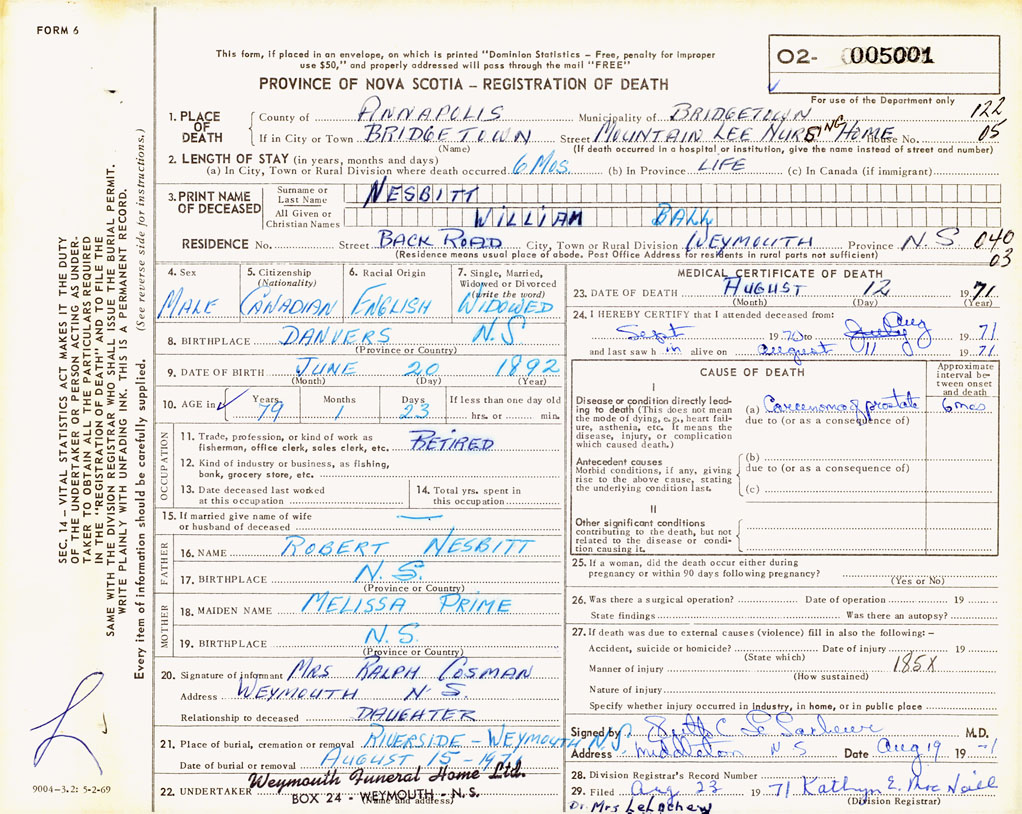 FORM 6
This form, if placed in an envelope, on which is printed "Dominion Statistics – Free, penalty for improper
use $50," and properly addressed will pass through the mail "FREE"
PROVINCE OF NOVA SCOTIA – REGISTRATION OF DEATH
02- 005001
For use of the Department only
SEC. 14 – VITAL STATISTICS ACT MAKES IT THE DUTY
OF THE UNDERTAKER OR PERSON ACTING AS UNDER-
TAKER TO OBTAIN ALL THE PARTICULARS REQUIRED
IN THE "REGISTRATION OF DEATH" AND TO FILE THE
SAME WITH THE DIVISION REGISTRAR WHO SHALL ISSUE THE BURIAL PERMIT.
WRITE PLAINLY WITH UNFADING INK. THIS IS A PERMANENT RECORD.
Every item of information should be carefully supplied. (See reverse side for instructions.)
1. PLACE OF DEATH
County of ANNAPOLIS Municipality of BRIDGETOWN 122
If in City or Town BRIDGETOWN Street MOUNTAIN LEE NURSING HOME House No. 05
(Name) (If death occurred in a hospital or institution, give the name instead of street and number)
2. LENGTH OF STAY (in years, months and days)
(a) In City, Town or Rural Division where death occurred 6 MOS. (b) In Province LIFE (c) In Canada (if immigrant)
3. PRINT NAME OF DECEASED
Surname or Last Name NESBITT
All Given or Christian Names WILLIAM BALL
RESIDENCE No. Street BACK ROAD City, Town or Rural Division WEYMOUTH Province N.S. 040
(Residence means usual place of abode. Post Office Address for residents in rural parts not sufficient) 03
4. Sex MALE
5. Citizenship (Nationality) CANADIAN
6. Racial Origin ENGLISH
7. Single, Married, Widowed or Divorced (write the word) WIDOWED
8. BIRTHPLACE DANVERS N.S
(Province or Country)
9. DATE OF BIRTH JUNE 20 1892
(Month) (Day) (Year)
10. AGE in Years 79 Months 1 Days 23 If less than one day old
hrs. or min.
OCCUPATION
11. Trade, profession, or kind of work as
fishermen, office clerk, sales clerk, etc. RETIRED
12. Kind of industry or business, as fishing,
bank, grocery store, etc.
13. Date deceased last worked
at this occupation
14. Total yrs. spent in
this occupation
15. If married give name of wife
or husband of deceased —
FATHER
16. NAME ROBERT NESBITT
17. BIRTHPLACE N.S.
(Province or Country)
MOTHER
18. MAIDEN NAME MELISSA PRIME
19. BIRTHPLACE N.S.
(Province or Country)
20. Signature of informant MRS RALPH COSMAN
Address WEYMOUTH N.S.
Relationship to deceased DAUGHTER
21. Place of burial, cremation or removal RIVERSIDE – WEYMOUTH N.S.
Date of burial or removal AUGUST 15 –
22. UNDERTAKER Weymouth Funeral Home Ltd.
BOX 24 - WEYMOUTH - N.S.
(Name and address)
9004–3.2: 5-2-69
MEDICAL CERTIFICATE OF DEATH
23. DATE OF DEATH AUGUST 12 1971
(Month) (Day) (Year)
24. I HEREBY CERTIFY that I attended deceased from:
Sept 1970 to July Aug 1971
and last saw him alive on august 11 1971
CAUSE OF DEATH
Approximate
interval be-
tween onset
and death
I
Disease or condition directly lead-
ing to death (This does not mean
the mode of dying, e.g., heart fail-
ure, asthenia, etc. It means the
disease, injury, or complication
which caused death.)
(a) Carcenoma of prostate 6 mos
due to (or as a consequence of)
Antecedent causes
Morbid conditions, if any, giving
rise to the above cause, stating
the underlying condition last.
(b)
due to (or as a consequence of)
(c)
II
Other significant conditions
contributing to the death, but not
related to the disease or condi-
tion causing it.
25. If a woman, did the death occur either during
pregnancy or within 90 days following pregnancy?
(Yes or No)
26. Was there a surgical operation? Date of operation 19
State findings Was there an autopsy?
27. If death was due to external causes (violence) fill in also the following: –
Accident, suicide or homicide? Date of injury 19
(State which)
Manner of injury 185X
(How sustained)
Nature of injury
Specify whether injury occurred in industry, in home, or in public place
Signed by M.D.
Address Middleton N S Date Aug 19 19
28. Division Registrar's Record Number
29. Filed Aug 23 1971 Kathryn E. Mac Neill
(Division Registrar)